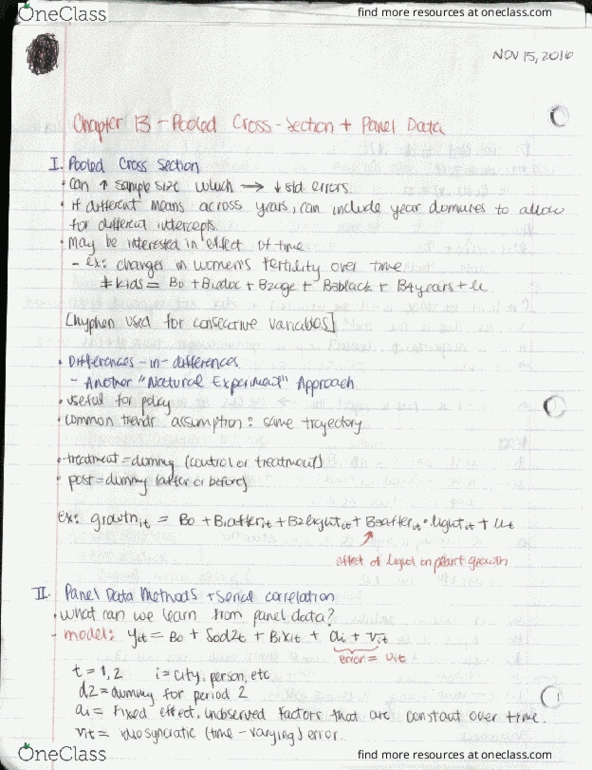 OneClass
find more resources at oneclass.com
NOV 15, 2016
Chapter 13 - Pooled Cross-Section + Panel Data
I. Pooled Cross Section
• can ↑ sample size which → ↓ std errors.
• if different means across years, can include year dummies to allow
for different intercepts
• may be interested in effect of time
- ex: changes in women's fertility over time
#kids = B0 + B1educ + B2age + B3black + B4years + u
[hyphen used for consecutive variables]
• Differences-in-differences
- Another "Natural Experiment" Approach
• useful for policy
• common trends assumption: same trajectory
• treatment = dummy (control or treatment)
• post = dummy (after or before)
Ex: growthit = B0 + B1afterit + B2lightit + B3afterit • lightit + uit
effect of light on plant growth
II. Panel Data Methods + Serial correlation
• what can we learn from panel data?
- model: yit = B0 + δ0d2t + B1xit + ai + vit
error = uit
t = 1, 2 i = city, person, etc
d2 = dummy for period 2
ai = fixed effect, unobserved factors that are constant over time.
vit = idiosyncratic (time-varying) error.
OneClass
find more resources at oneclass.com